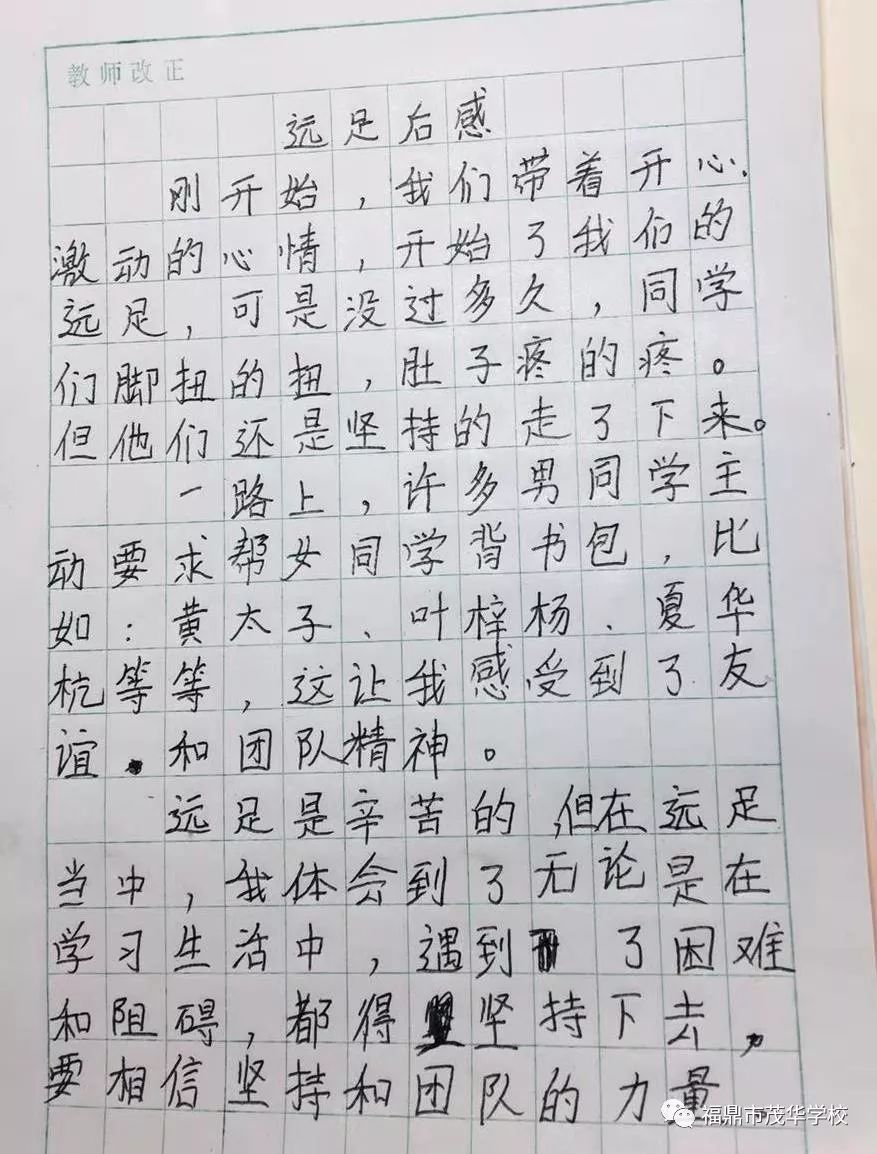 教师改正
远足后感
刚开始，我们带着开心、
激动的心情，开始了我们的
远足，可是没过多久，同学
们脚扭的扭，肚子疼的疼。
但他们还是坚持的走了下来。
一路上，许多男同学主
动要求帮女同学背书包，比
如：黄太子、叶梓杨、夏华
杭等等，这让我感受到了友
谊、和团队精神。
远足是辛苦的，但在远足
当中，我体会到了无论是在
学习生活中，遇到了困难
和阻碍，都得坚持下去，
要相信坚持和团队的力量
福鼎市茂华学校